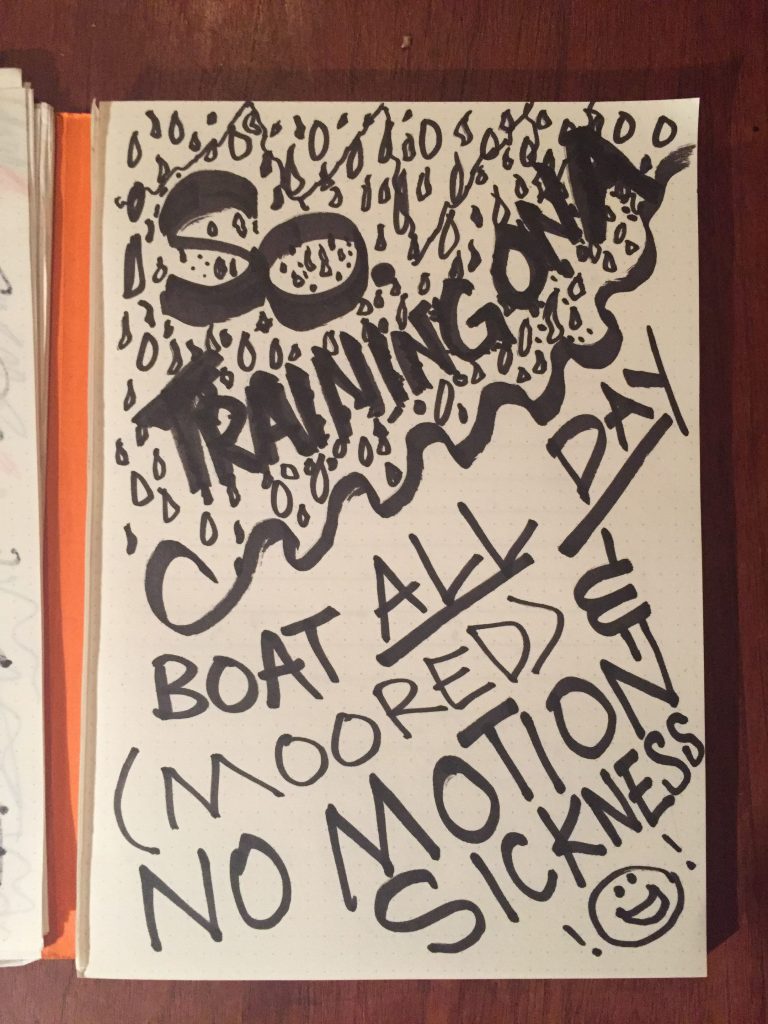 SO.
TRAINING ON A
BOAT ALL DAY
(MOORED) &
NO MOTION
SICKNESS